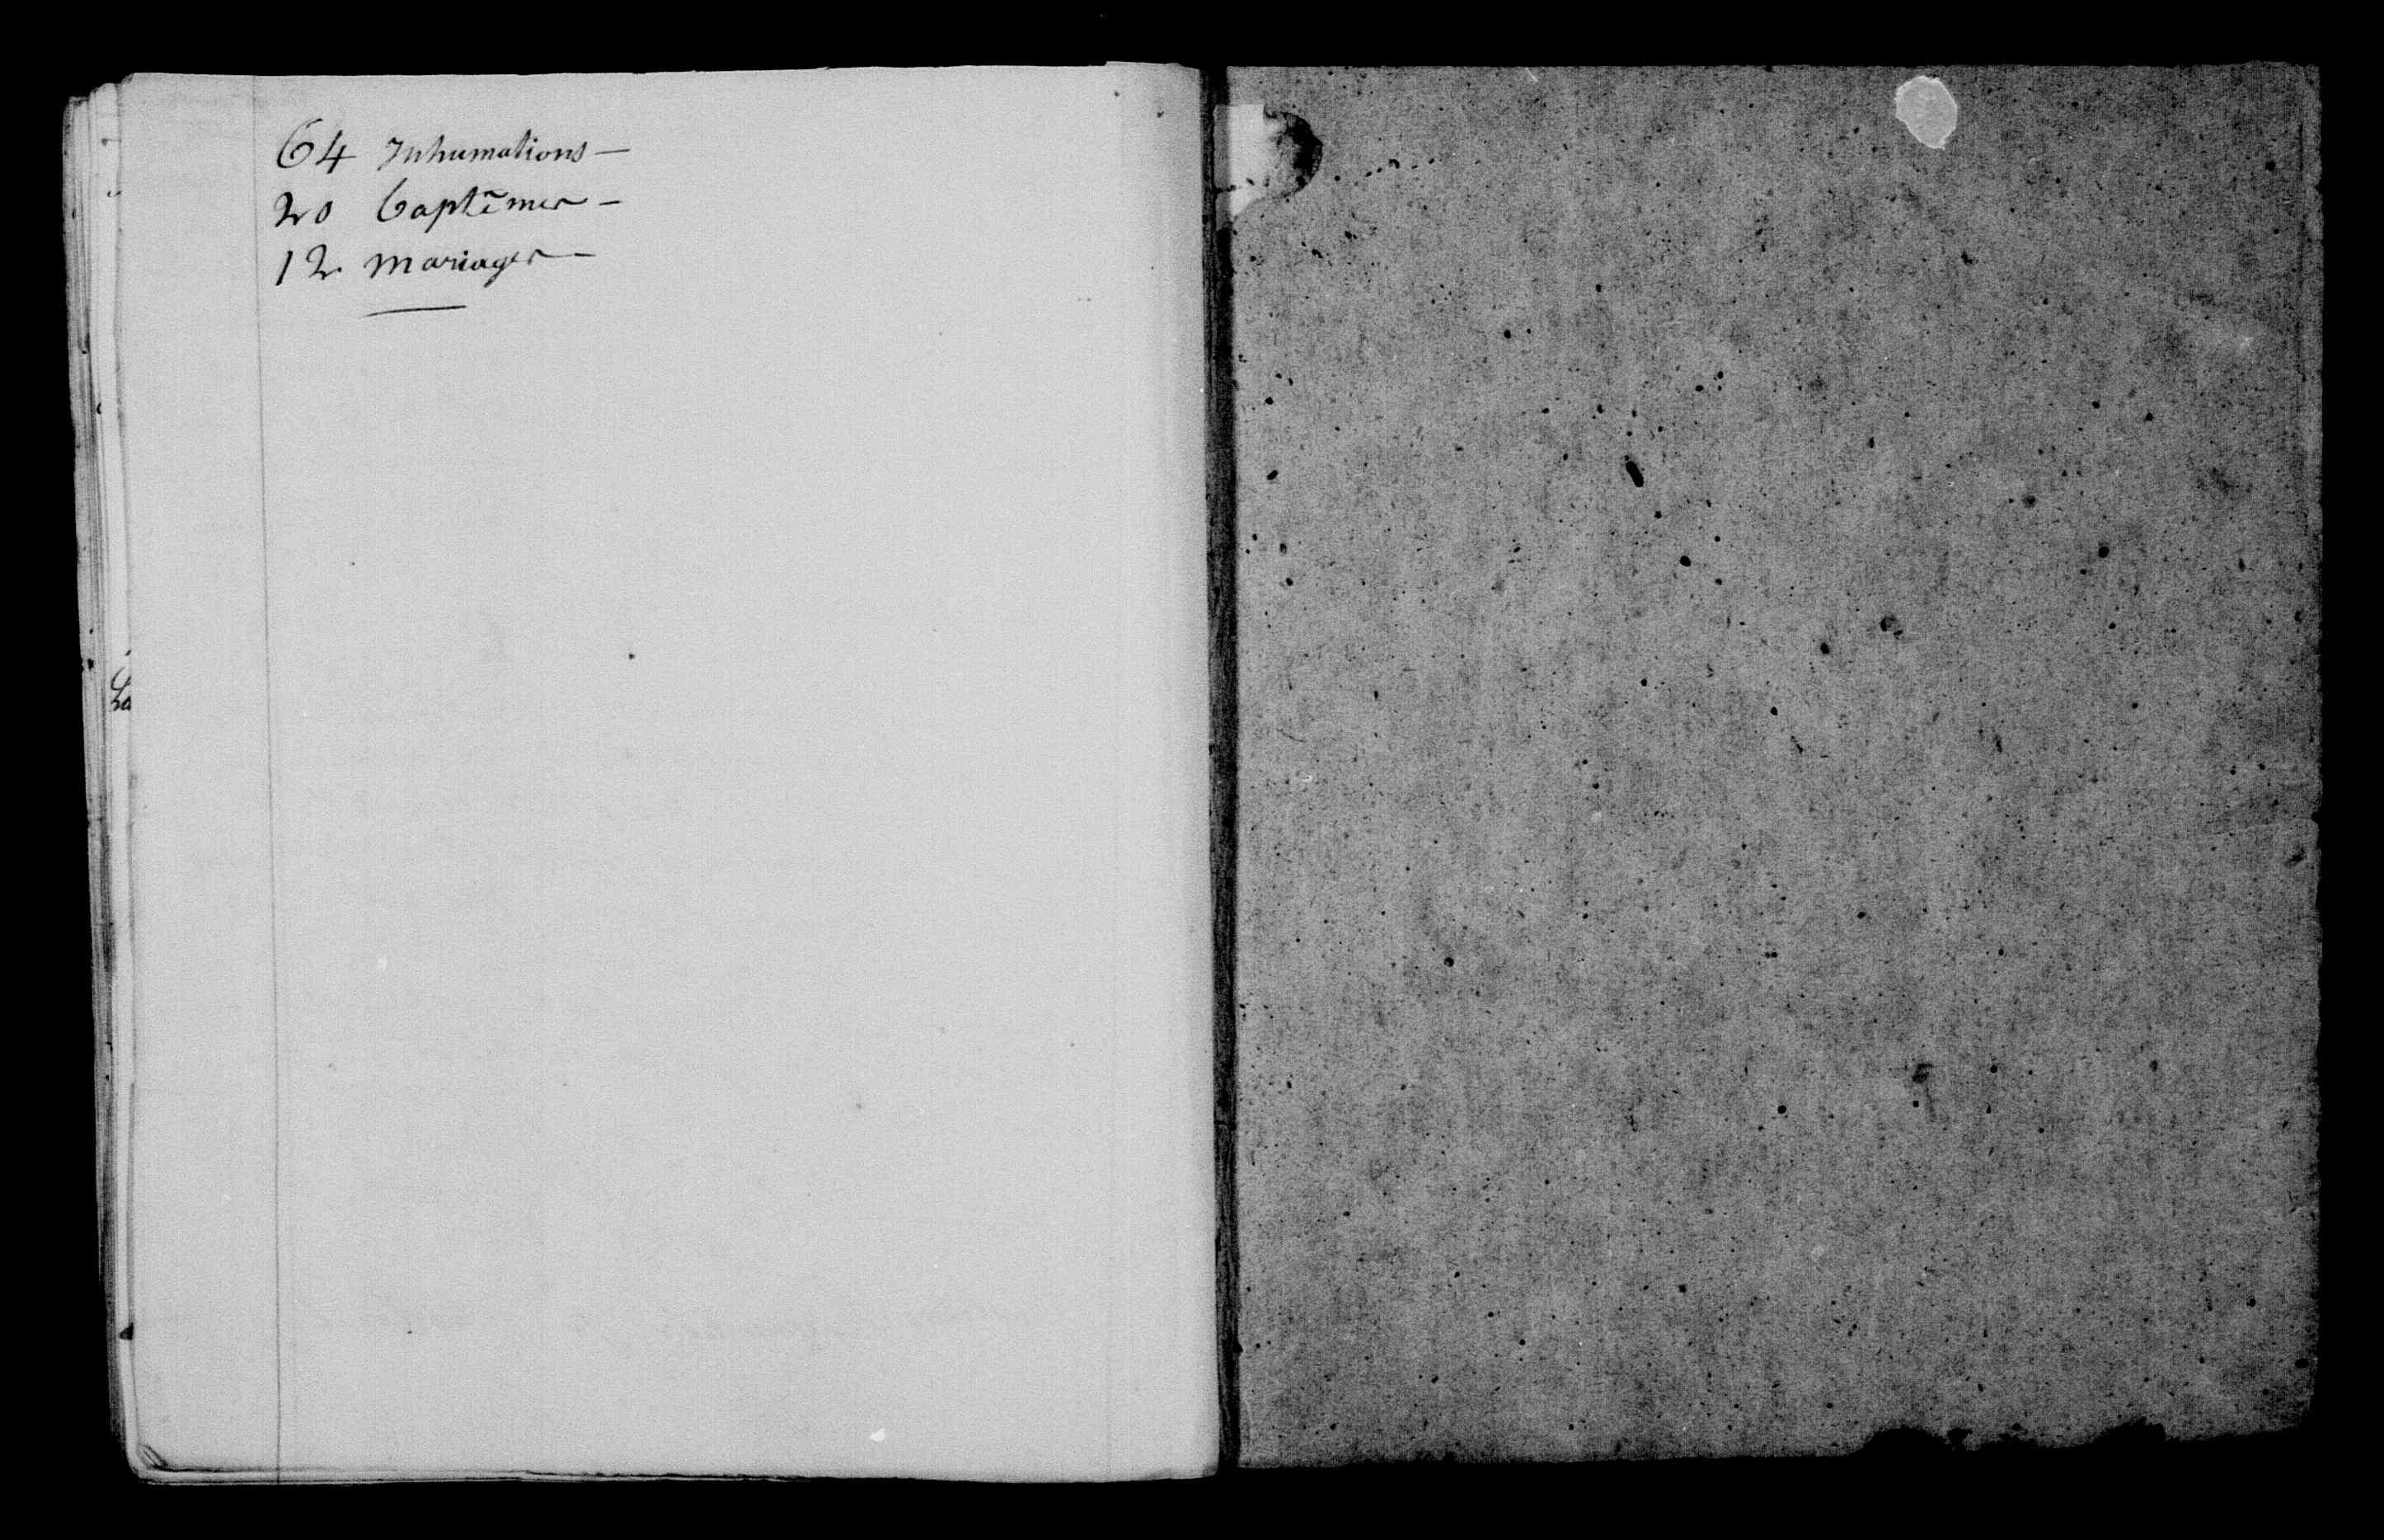 64 Inhumations —
20 baptêmes —
12 mariages —